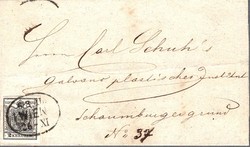 Herrn Carl Schuh's
Galvano plastisches Institut
Schaumburgergrund
No. 37
WIEN
XI